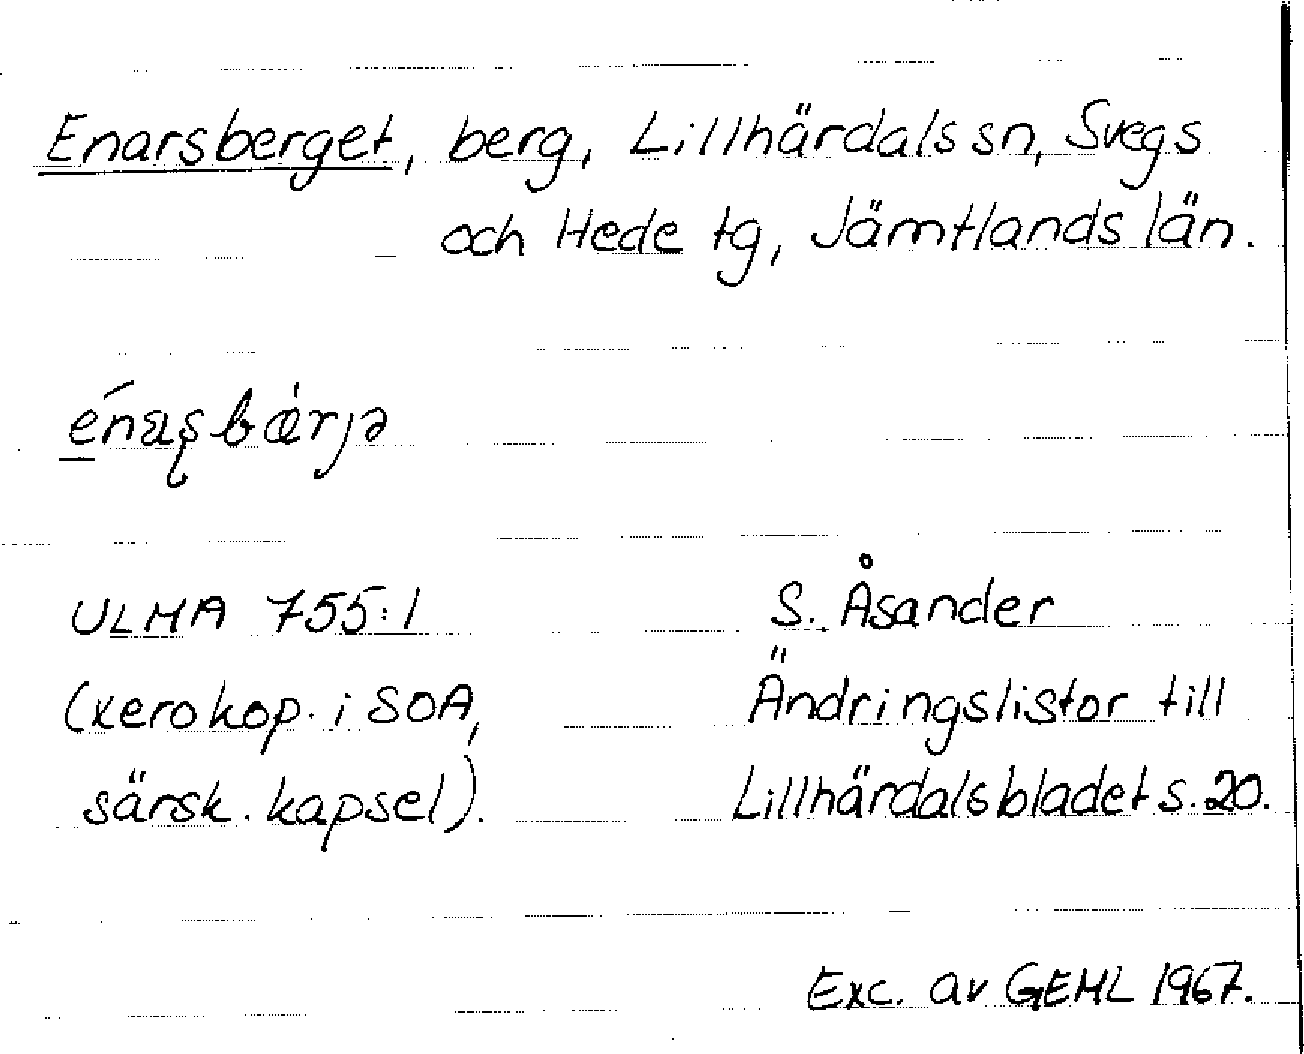 Enarsberget, berg, Lillhärdals sn, Svegs
och Hede tg, Jämtlands län.
ULMA 755:1
S. Åsander
(xerokop. i SOA,
Ändringslistor till
särsk. kapsel).
Lillhärdalsbladet s. 20.
Exc. av GEHL 1967.